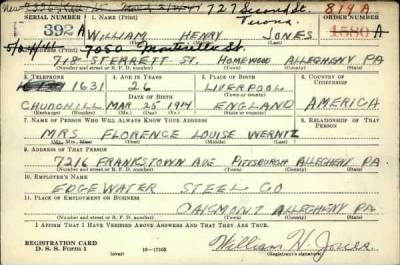 727 Second St.
Verona.
819 A
SERIAL NUMBER 1. Name (Print) ORDER NUMBER
392 A WILLIAM HENRY JONES 1580 A
(First) (Middle) (Last)
7050 Monticello St.
718 STERRETT ST. HOMEWOOD ALLEGHENY PA
(Number and street or R. F. D. number) (Town) (County) (State)
3. TELEPHONE 4. AGE IN YEARS 5. PLACE OF BIRTH 6. COUNTRY OF CITIZENSHIP
1631 26 LIVERPOOL
DATE OF BIRTH (Town or county)
CHURCHILL MAR 25 1914 ENGLAND AMERICA
(Exchange) (Number) (Mo.) (Day) (Yr.) (State or country)
7. NAME OF PERSON WHO WILL ALWAYS KNOW YOUR ADDRESS 8. RELATIONSHIP OF THAT PERSON
MRS FLORENCE LOUISE WERNTZ
(Mr., Mrs., Miss) (First) (Middle) (Last)
9. ADDRESS OF THAT PERSON
7216 FRANKSTOWN AVE PITTSBURGH ALLEGHENY PA.
(Number and street or R. F. D. number) (Town) (County) (State)
10. EMPLOYER'S NAME
EDGEWATER STEEL CO
11. PLACE OF EMPLOYMENT OR BUSINESS
OAKMONT ALLEGHENY PA
(Number and street or R. F. D. number) (Town) (County) (State)
I AFFIRM THAT I HAVE VERIFIED ABOVE ANSWERS AND THAT THEY ARE TRUE.
REGISTRATION CARD
D. S. S. Form 1 (over) 16—17105
William H. Jones
(Registrant's signature)